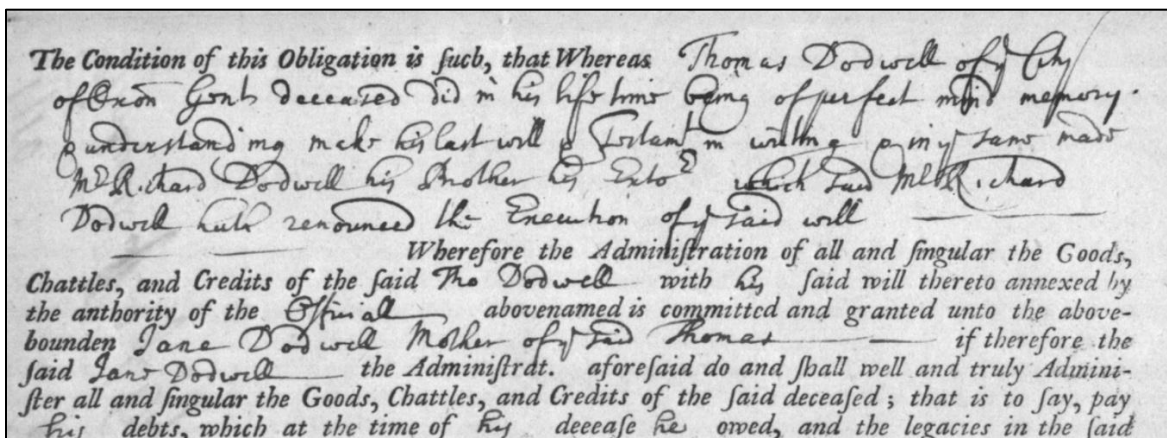 The Condition of this Obligation is such, that Whereas Thomas Dodwell of yͤ City
of Oxon Gent deceased did in his life time being of perfect mind memory
& understanding make his last will & Testamt in writing & in yͤ same made
Mr Richard Dodwell his Brother his Exto^r which said Mr Richard
Dodwell hath renounced the Execution of yͤ said will
Wherefore the Administration of all and singular the Goods,
Chattles, and Credits of the said Tho Dodwell with his said will thereto annexed by
the anthority of the Official abovenamed is committed and granted unto the above-
bounden Jane Dodwell Mother of yͤ said Thomas if therefore the
said Jane Dodwell the Administrat. aforesaid do and shall well and truly Admini-
ster all and singular the Goods, Chattles, and Credits of the said deceased; that is to say, pay
his debts, which at the time of his deeease he owed, and the legacies in the said